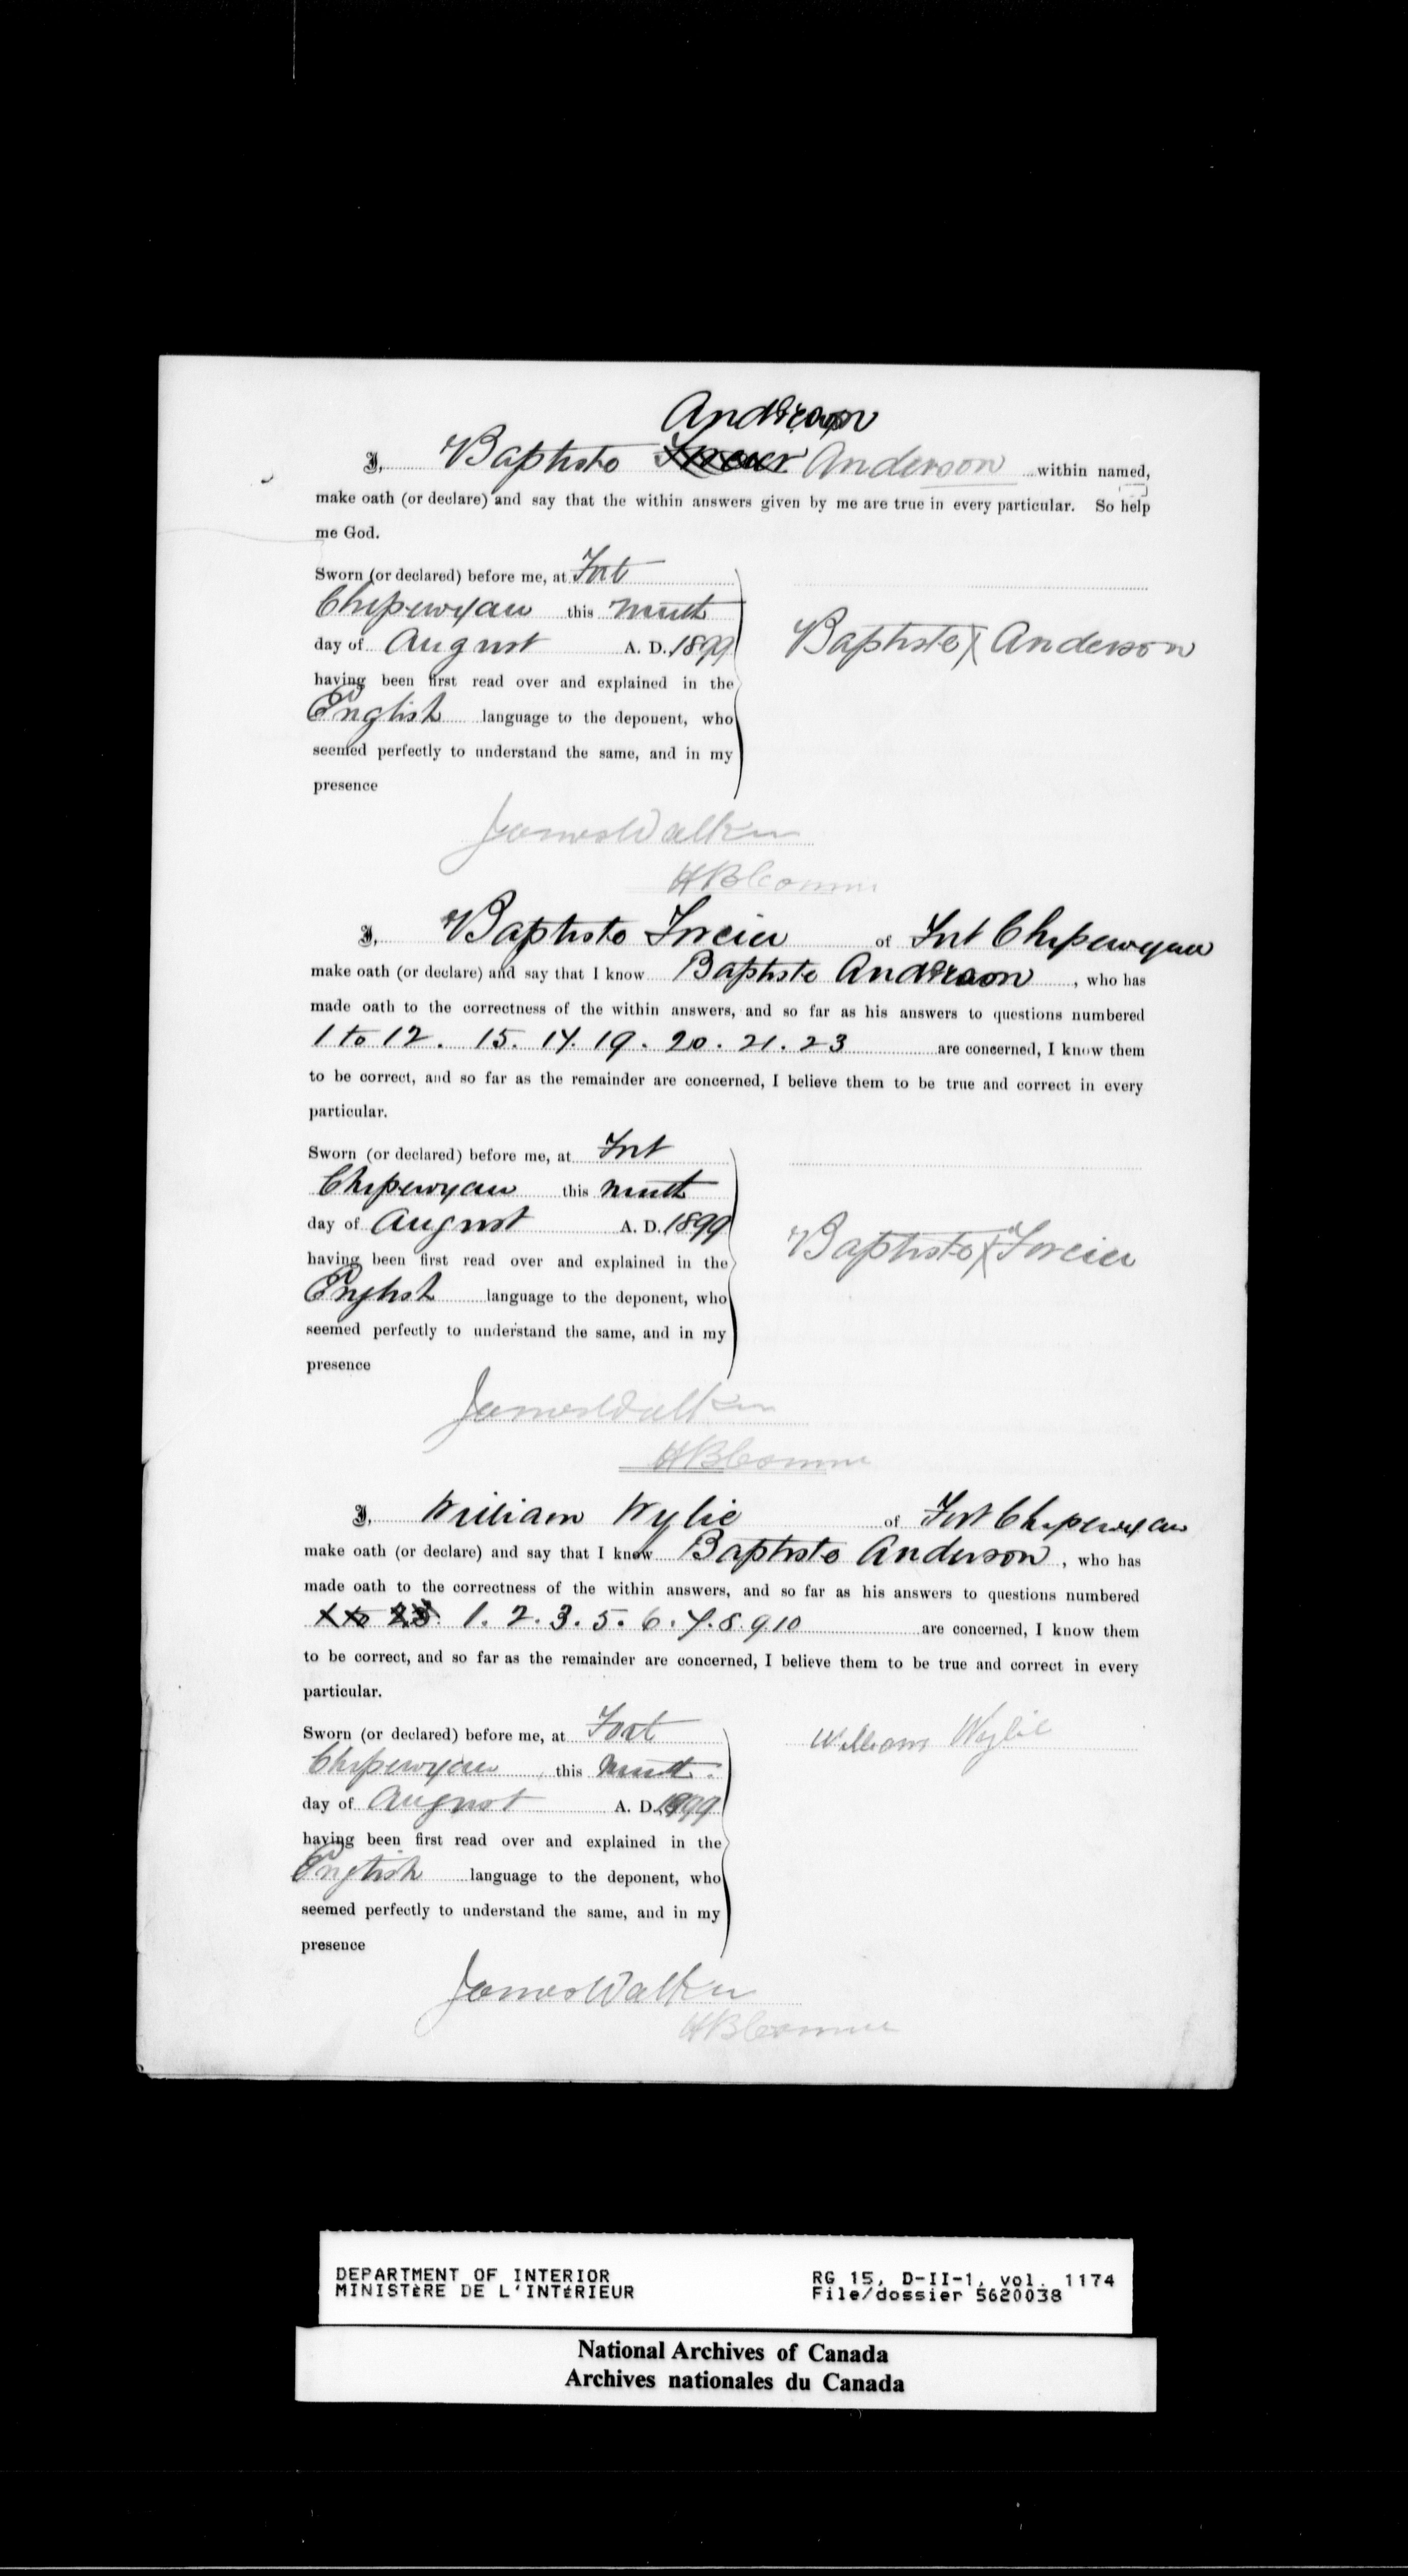 Anderson
I, Baptiste Forcier Anderson within named,
make oath (or declare) and say that the within answers given by me are true in every particular. So help
me God.
Sworn (or declared) before me, at Fort
Chipewyan this ninth
day of August A. D. 1899
having been first read over and explained in the
English language to the deponent, who
seemed perfectly to understand the same, and in my
presence
Baptiste X Anderson
James Walker
HB Comm
I, Baptiste Forcier of Fort Chipewyan
make oath (or declare) and say that I know Baptiste Anderson, who has
made oath to the correctness of the within answers, and so far as his answers to questions numbered
1 to 12. 15. 17. 19. 20. 21. 23 are concerned, I know them
to be correct, and so far as the remainder are concerned, I believe them to be true and correct in every
particular.
Sworn (or declared) before me, at Fort
Chipewyan this ninth
day of August A. D. 1899
having been first read over and explained in the
English language to the deponent, who
seemed perfectly to understand the same, and in my
presence
Baptiste X Forcier
James Walker
HB Comm
I, William Wylie of Fort Chipewyan
make oath (or declare) and say that I know Baptiste Anderson, who has
made oath to the correctness of the within answers, and so far as his answers to questions numbered
1 to 23. 1. 2. 3. 5. 6. 7. 8. 9. 10 are concerned, I know them
to be correct, and so far as the remainder are concerned, I believe them to be true and correct in every
particular.
Sworn (or declared) before me, at Fort
Chipewyan, this ninth.
day of August A. D. 1899
having been first read over and explained in the
English language to the deponent, who
seemed perfectly to understand the same, and in my
presence
William Wylie
James Walker
HB Comm
DEPARTMENT OF INTERIOR
MINISTÈRE DE L'INTÉRIEUR
RG 15, D-II-1, vol. 1174
File/dossier 5620038
National Archives of Canada
Archives nationales du Canada